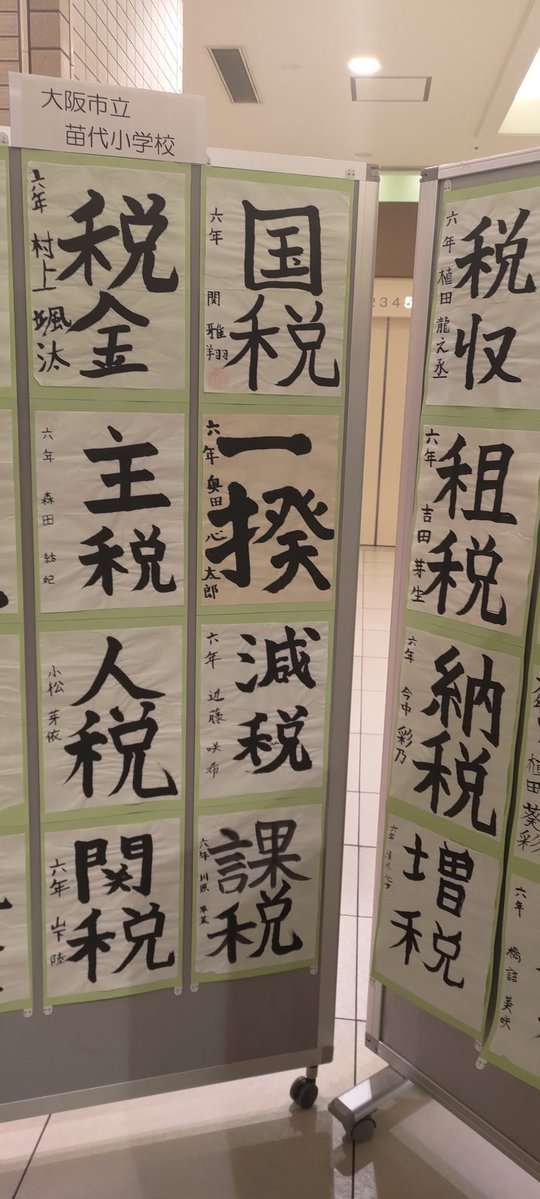 大阪市立
苗代小学校
税金
六年 村上 颯汰
国税
六年 関 雅翔
主税
六年 森田
一揆
六年 奥田 心太郎
人税
小松 芽依
減税
六年 近藤 咲希
関税
六年 山下 陸
課税
六年 川原
税収
六年 植田 龍之丞
租税
六年 吉田 芽生
納税
六年 今中 彩乃
増税
六年
植田 葵彩
六年 橋詰 美咲
2345